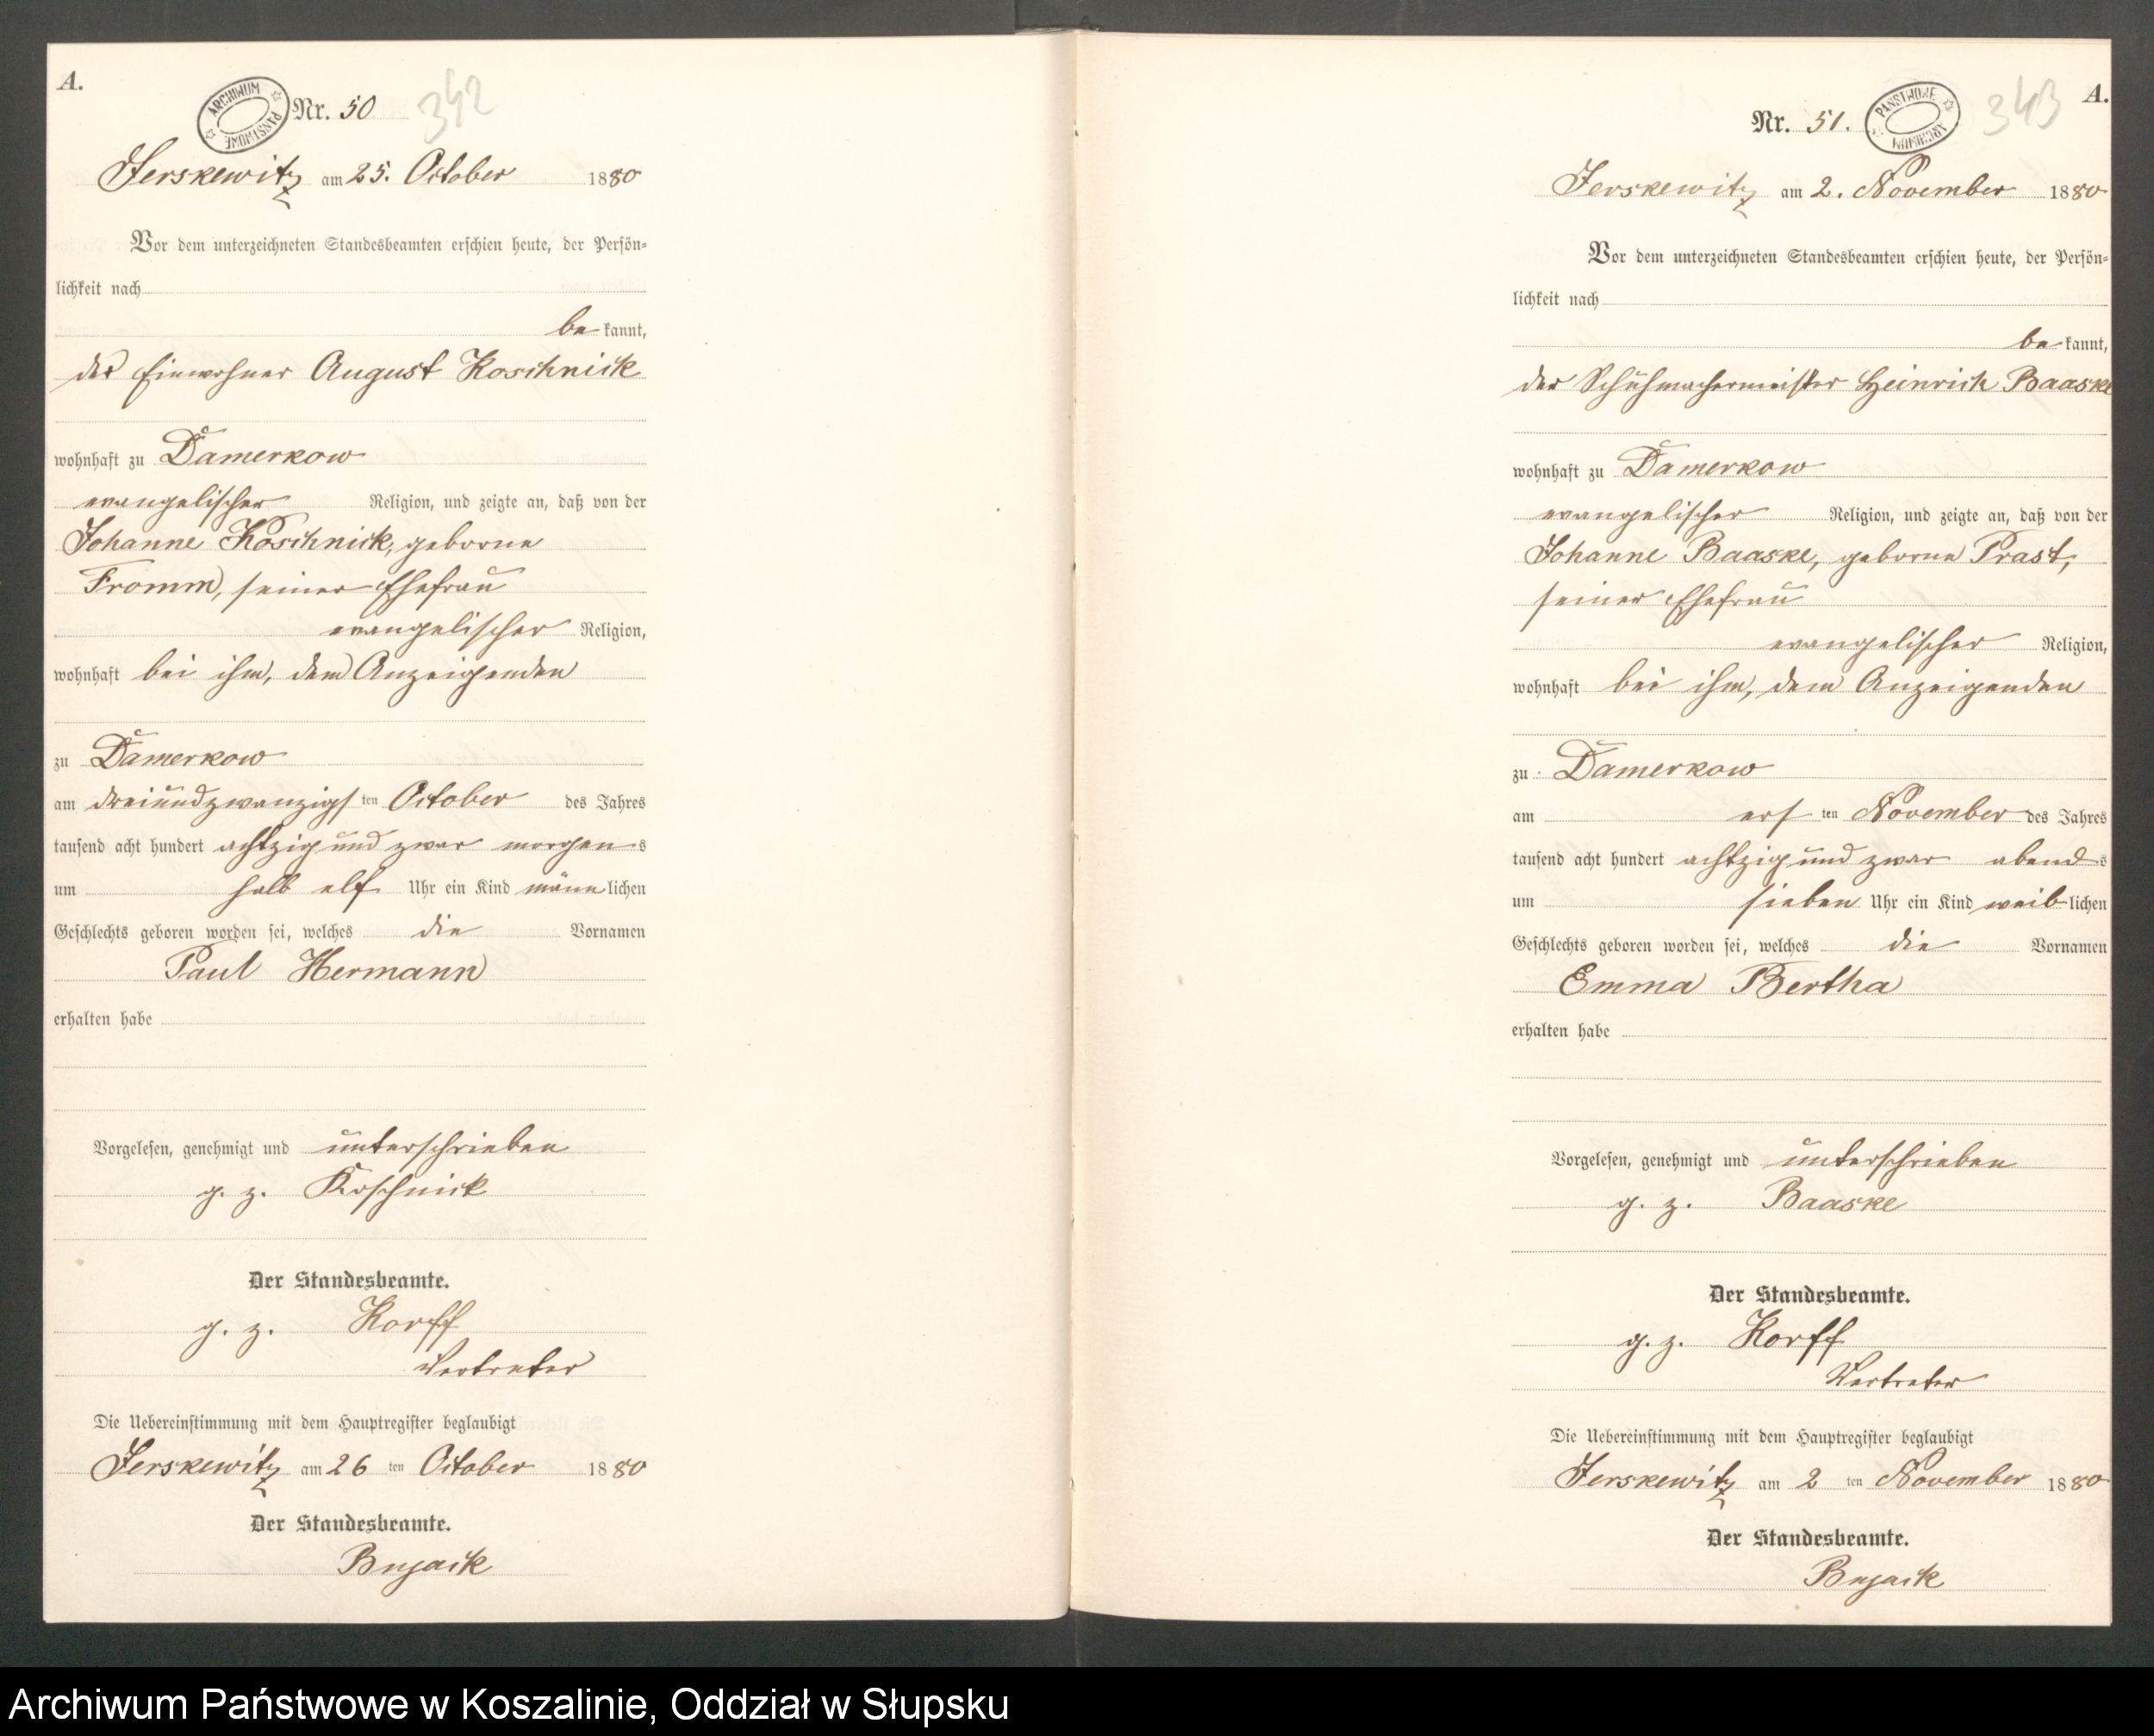 A.
ARCHIWUM PAŃSTWOWE
Nr. 50
342
Jerskewitz am 25. October 1880
Vor dem unterzeichneten Standesbeamten erschien heute, der Persön-
lichkeit nach
be kannt,
der Einwohner August Koschnick
wohnhaft zu Damerkow
evangelischer Religion, und zeigte an, daß von der
Johanne Koschnick, geborne
Fromm, seiner Ehefrau
evangelischer Religion,
wohnhaft bei ihm, dem Anzeigenden
zu Damerkow
am dreiundzwanzigs ten October des Jahres
tausend acht hundert achtzig und zwar morgen s
um halb elf Uhr ein Kind männ lichen
Geschlechts geboren worden sei, welches die Vornamen
Paul Hermann
erhalten habe
Vorgelesen, genehmigt und unterschrieben
g. z. Koschnick
Der Standesbeamte.
g. z. Korff
Vertreter
Die Uebereinstimmung mit dem Hauptregister beglaubigt
Jerskewitz am 26 ten October 1880
Der Standesbeamte.
Bujack
A.
Nr. 51.
PAŃSTWOWE ARCHIWUM
343
Jerskewitz am 2. November 1880
Vor dem unterzeichneten Standesbeamten erschien heute, der Persön-
lichkeit nach
be kannt,
der Schuhmachermeister Heinrich Baaske
wohnhaft zu Damerkow
evangelischer Religion, und zeigte an, daß von der
Johanne Baaske, geborne Prast,
seiner Ehefrau
evangelischer Religion,
wohnhaft bei ihm, dem Anzeigenden
zu Damerkow
am ers ten November des Jahres
tausend acht hundert achtzig und zwar abend s
um sieben Uhr ein Kind weib lichen
Geschlechts geboren worden sei, welches die Vornamen
Emma Bertha
erhalten habe
Vorgelesen, genehmigt und unterschrieben
g. z. Baaske
Der Standesbeamte.
g. z. Korff
Vertreter
Die Uebereinstimmung mit dem Hauptregister beglaubigt
Jerskewitz am 2 ten November 1880
Der Standesbeamte.
Bujack
Archiwum Państwowe w Koszalinie, Oddział w Słupsku